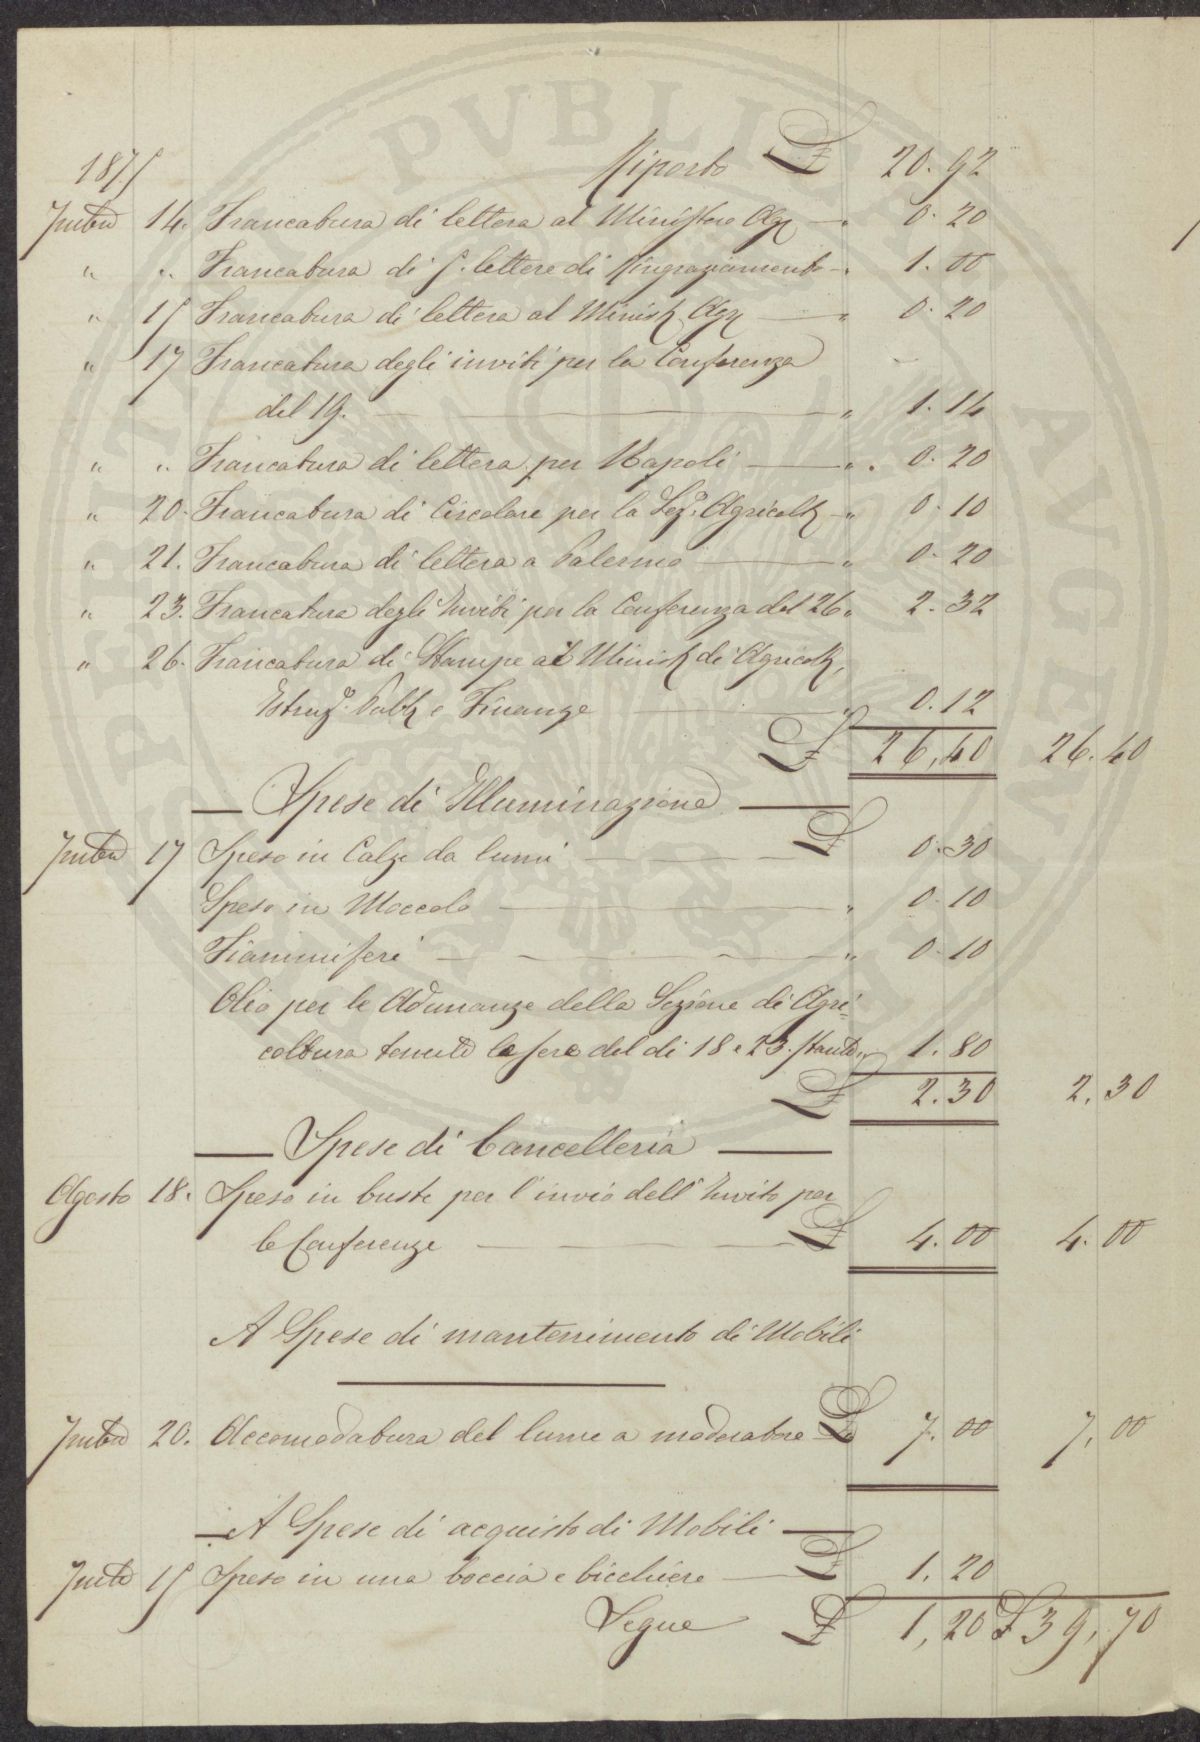 1875 Riporto £ 20.92
7mbre 14. Francatura di lettera al Ministero Agr — " 0.20
" " Francatura di 5. lettere di Ringraziamento — " 1.00
" 15 Francatura di lettera al Minist. Agr — " 0.20
" 17 Francatura degli inviti per la Conferenza
del 19. — " 1.14
" " Francatura di lettera per Napoli — " 0.20
" 20. Francatura di Circolare per la Sez.e Agricolt. — " 0.10
" 21. Francatura di lettera a Palermo — " 0.20
" 23. Francatura degli Inviti per la Conferenza del 26 " 2.32
" 26. Francatura di Stampe al Minist. di Agricolt.,
Istruz.e Pubb. e Finanze — " 0.12
£ 26,40 26.40
— Spese di Illuminazione —
7mbre 17 Spese in Calze da lumi — £ 0.30
Spese in Moccolo — " 0.10
Fiammiferi — " 0.10
Olio per le Adunanze della Sezione di Agri=
coltura tenute le sere del di 18 e 23. stante " 1.80
£ 2.30 2.30
— Spese di Cancelleria —
Agosto 18. Spese in buste per l'invio dell'Invito per
le Conferenze — £ 4.00 4.00
A Spese di mantenimento di Mobili
7mbre 20. Accomodatura del lume a moderatore £ 7.00 7,00
— A Spese di acquisto di Mobili —
7mbre 15 Spese in una boccia e bicchiere — £ 1,20
Segue £ 1,20 £ 39,70
PVBLICA AVGENDAE PROSPERITATI